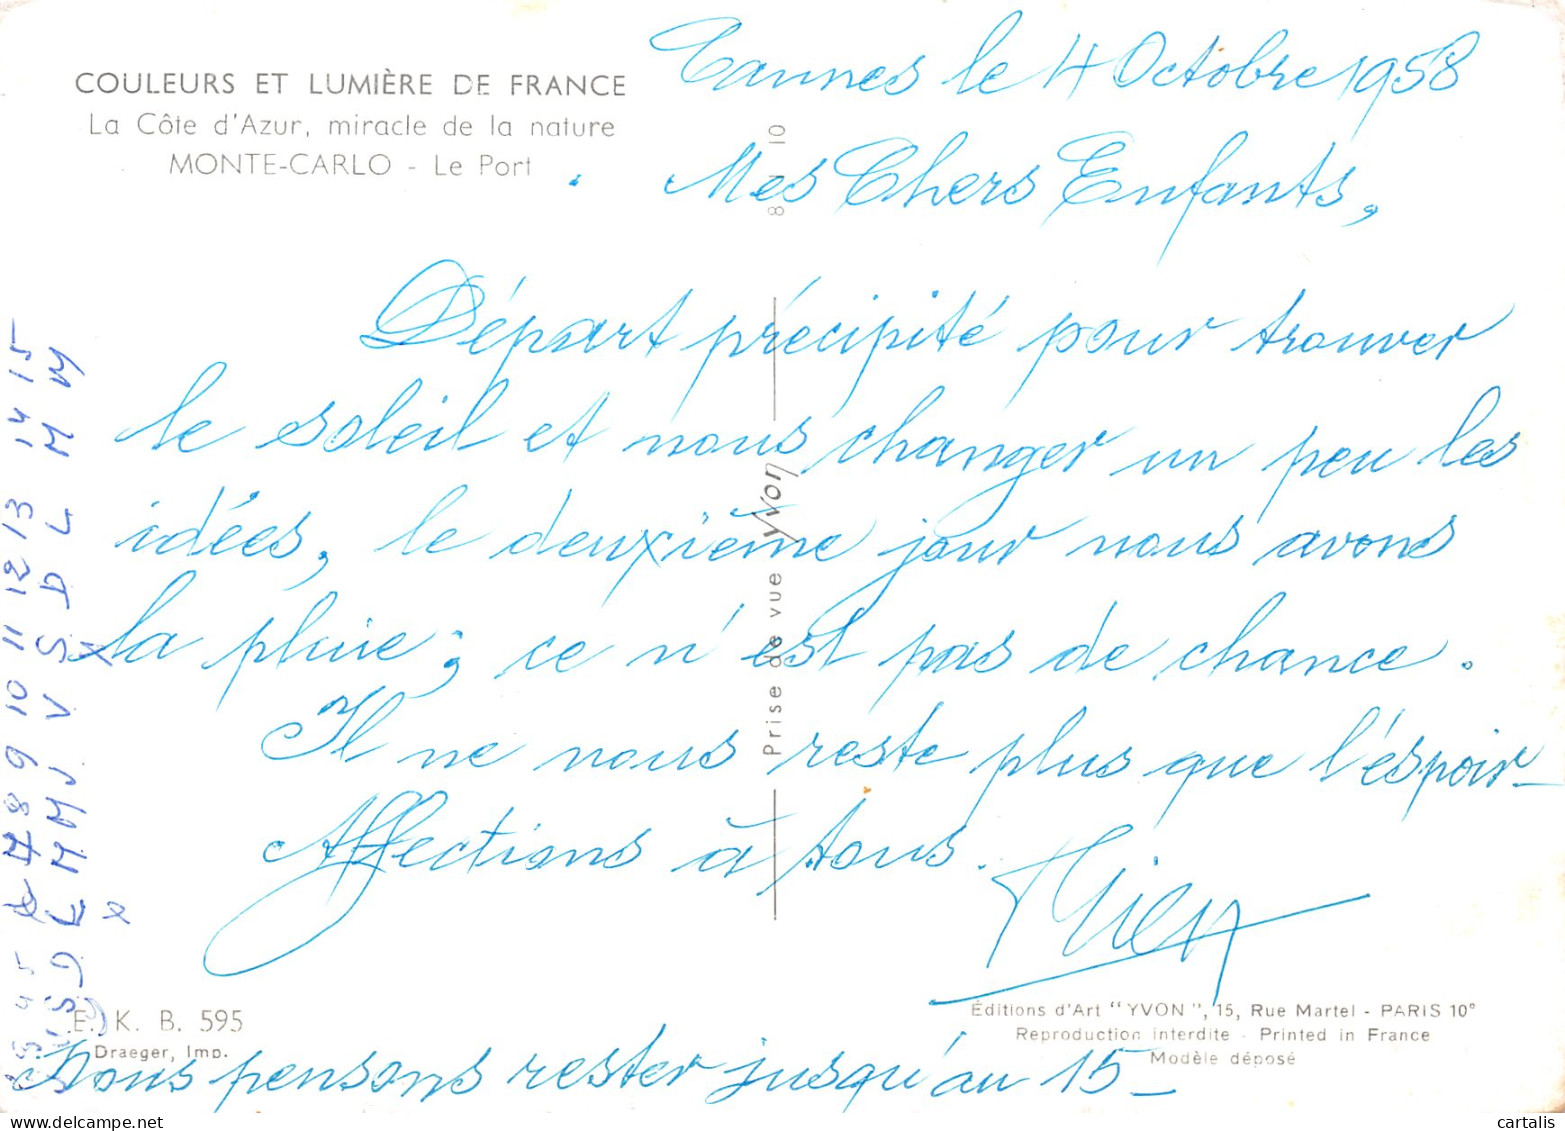 COULEURS ET LUMIÈRE DE FRANCE
La Côte d'Azur, miracle de la nature
MONTE-CARLO - Le Port
Cannes le 4 Octobre 1958
Mes Chers Enfants,
Départ précipité pour trouver
le soleil et nous changer un peu les
idées, le deuxième jour nous avons
la pluie ; ce n'est pas de chance.
Il ne nous reste plus que l'éspoir_
Affections à tous.
Nous pensons rester jusqu'au 15_
8 10
Prise de vue Yvon
8 9 10 11 12 13 14 15
M J V S D L M M
E. K. B. 595
Draeger, Imp.
Éditions d'Art "YVON", 15, Rue Martel - PARIS 10e
Reproduction interdite - Printed in France
Modèle déposé
cartalis